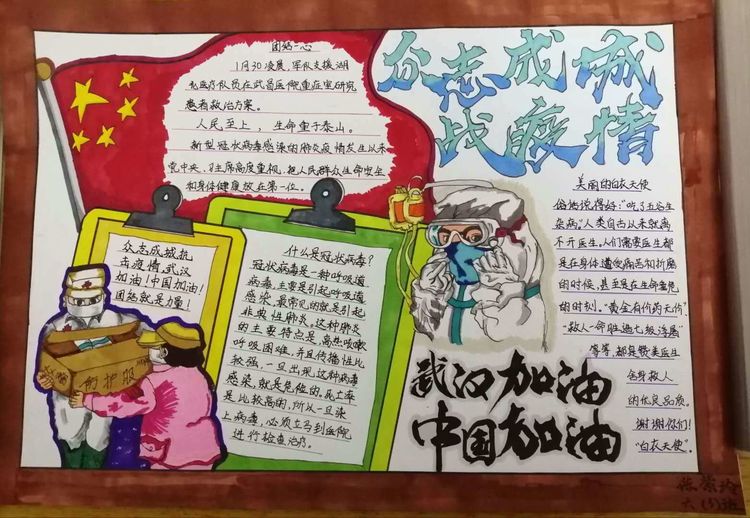 众志成城
战疫情
团结一心
1月30凌晨,军队支援湖
北医疗队员在武昌医院重症室研究
患者救治方案。
人民至上,生命重于泰山。
新型冠状病毒感染的肺炎疫情发生以来
党中央、习主席高度重视,把人民群众生命安全
和身体健康放在第一位。
众志成城抗
击疫情,武汉
加油!中国加油!
团结就是力量!
什么是冠状病毒?
冠状病毒是一种呼吸道
病毒,主要是引起呼吸道
感染,最常见的就是引起
非典性肺炎。这种肺炎
的主要特点是,高热咳嗽
呼吸困难,并且传播性比
较强,一旦出现这种病毒
感染,就是危险的。死亡率
是比较高的,所以一旦染
上病毒,必须立马到医院
进行检查治疗。
美丽的白衣天使
俗话说得好:“吃了五谷生
杂病。”人类自古以来就离
不开医生。人们需要医生都
是在身体遭受痛苦和折磨
的时候,甚至是在生命垂危
的时刻。“黄金有价药无价”
“救人一命胜造七级浮屠”
等等,都是赞美医生
舍身救人
的优良品质。
谢谢你们!
“白衣天使”。
防护服
武汉加油
中国加油
六(5)班